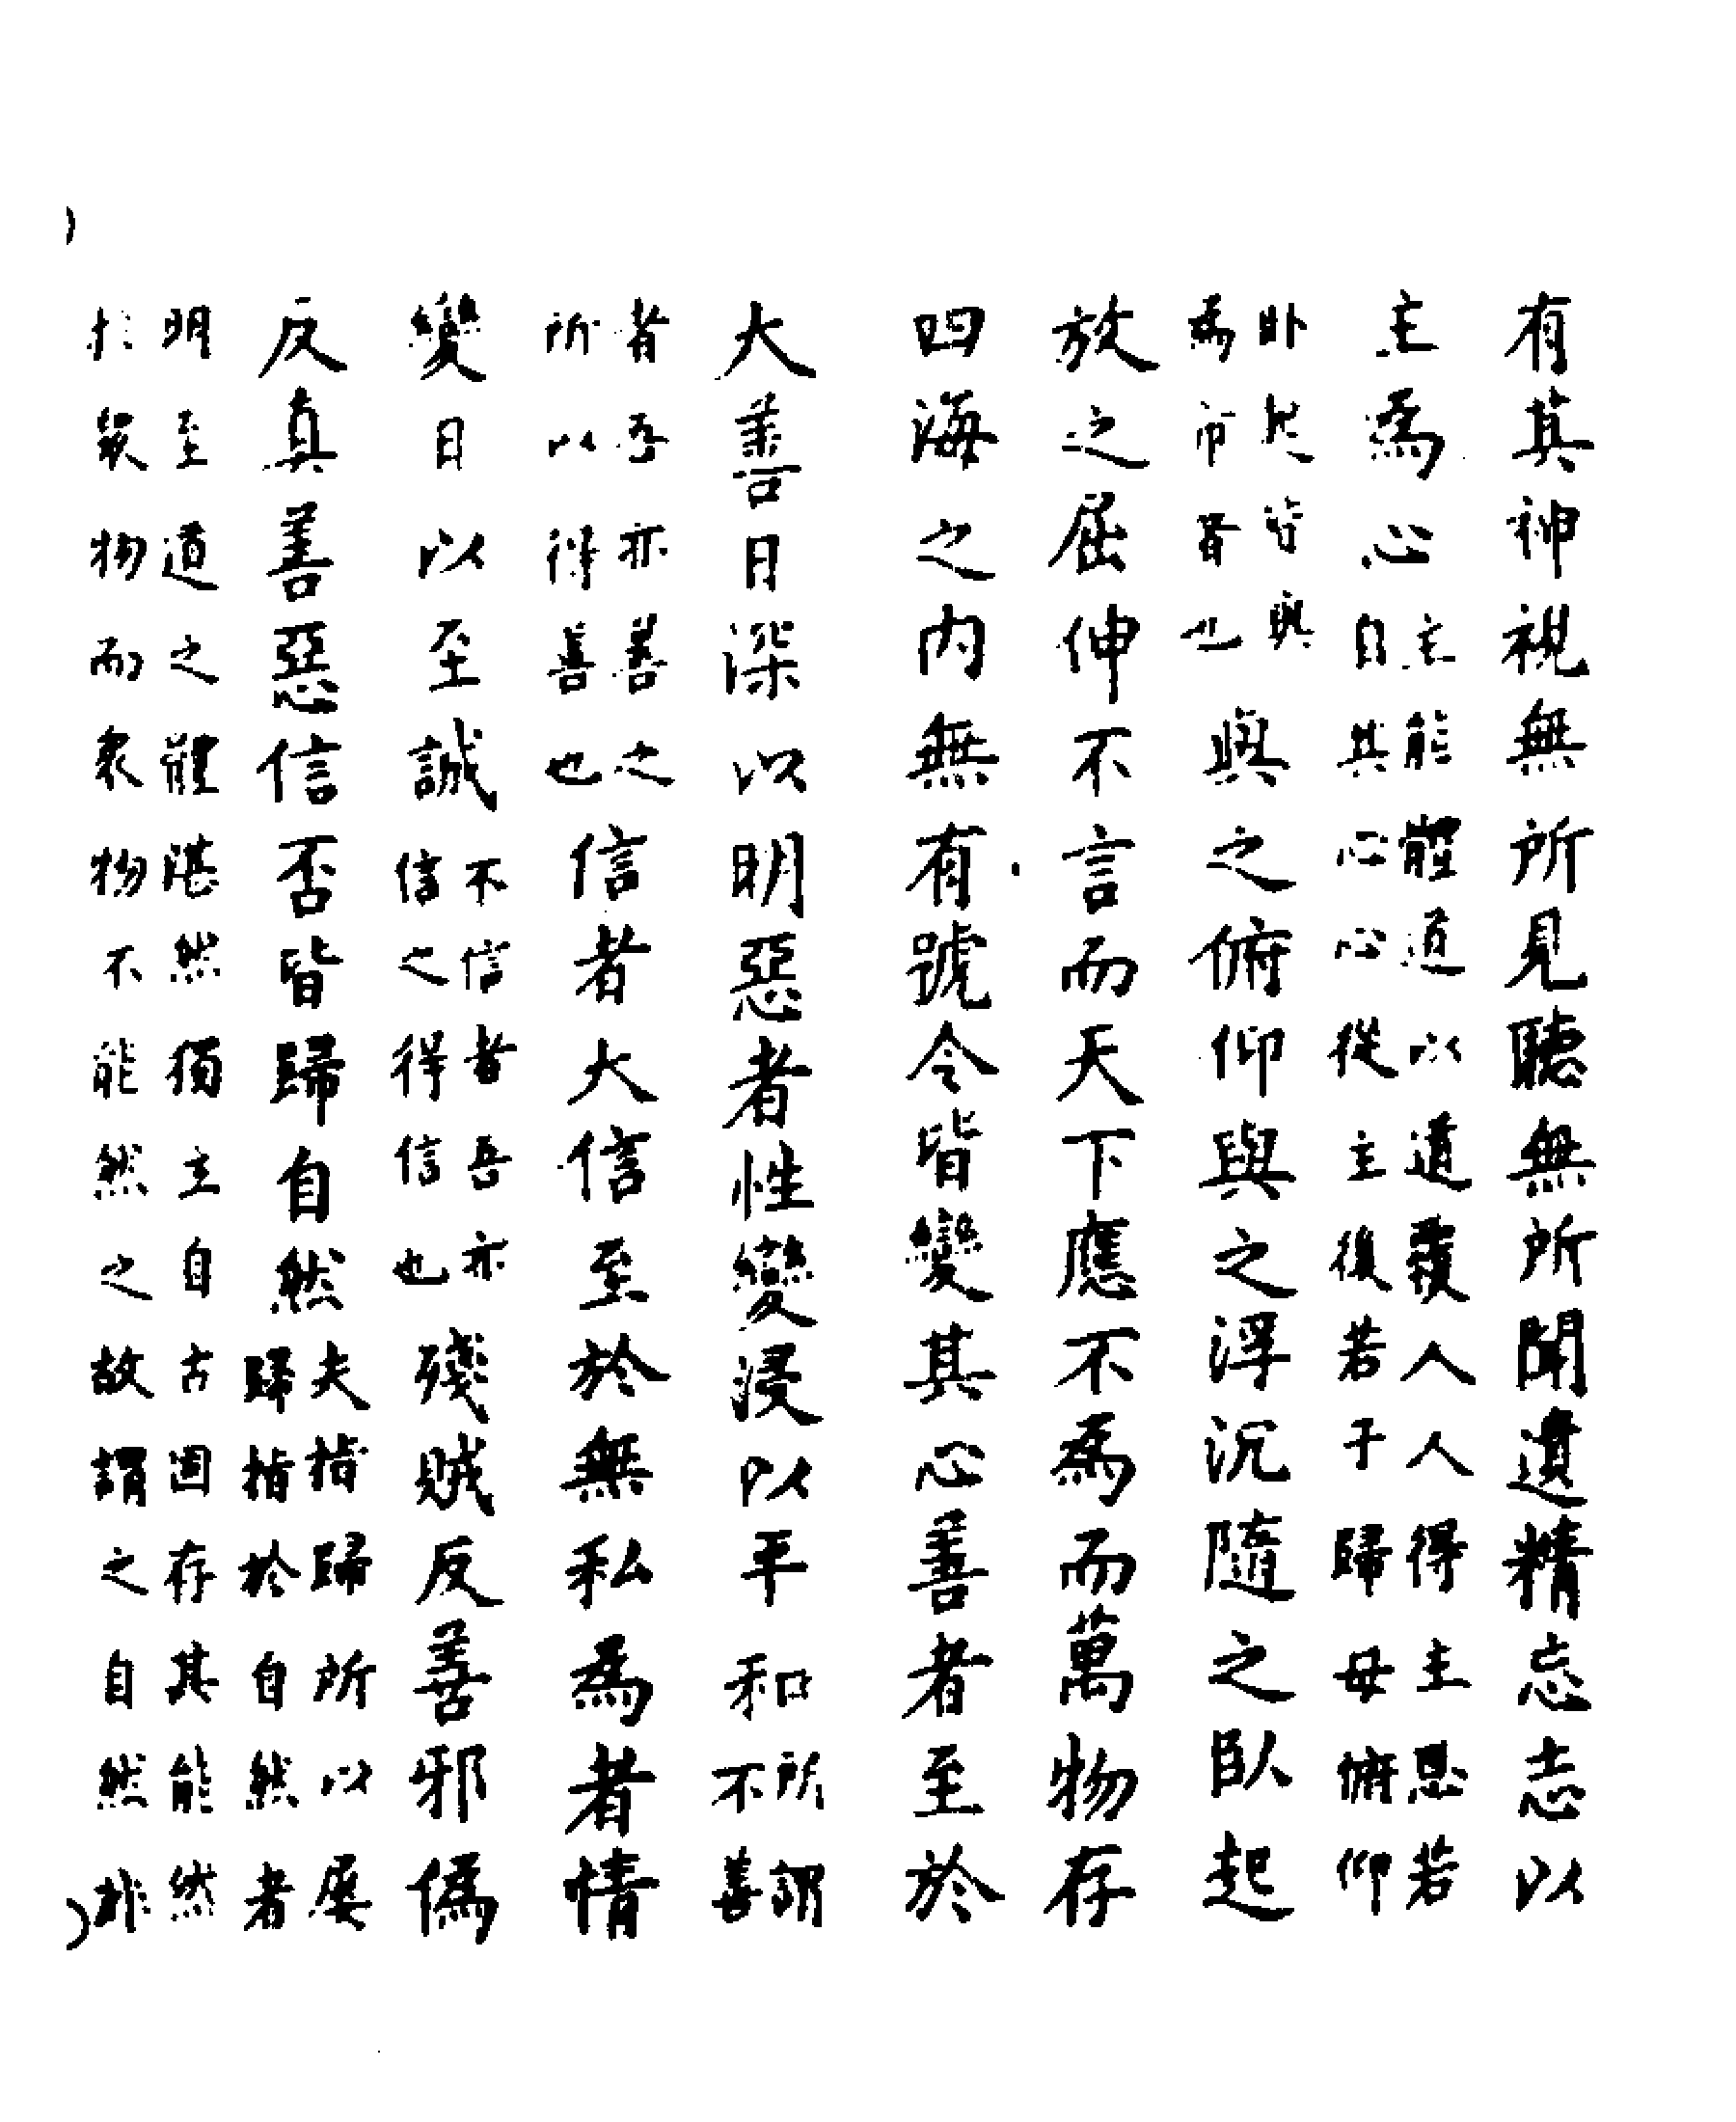 有其神視無所見聽無所聞遺精忘志以
主為心主能體道以道覆人人得主恩若
自其心心從主復若子歸母俯仰
卧起皆與
為者也與之俯仰與之浮沉隨之臥起
放之屈伸不言而天下應不為而萬物存
四海之内無有號令皆變其心善者至於
大善日深以明惡者性變浸以平和所謂
不善
者吾亦善之
所以得善也信者大信至於無私為者情
變日以至誠不信者吾亦
信之得信也殘賊反善邪偽
反真善惡信否皆歸自然夫指歸所以屢
歸指於自然者
明至道之體湛然獨主自古固存其能然
於衆物而衆物不能然之故謂之自然非